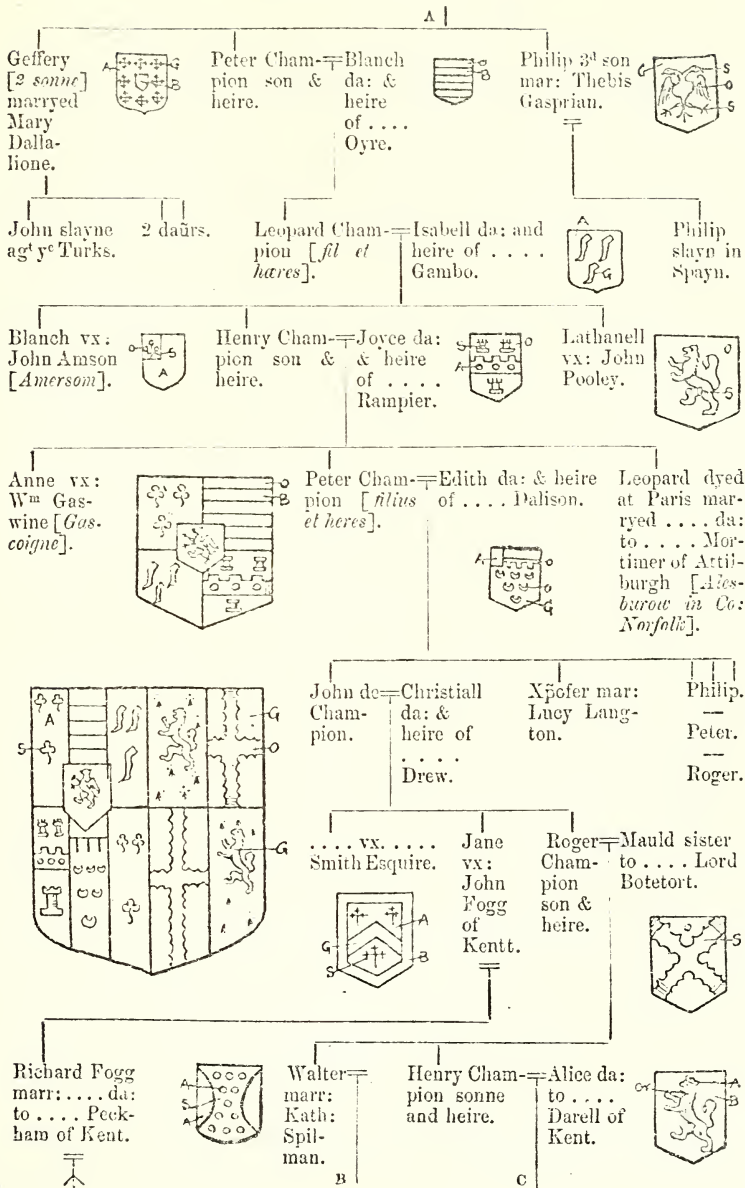 A
Geffery
[2 sonne]
marryed
Mary
Dalla-
lione.
A
G
B
G
Peter Cham-
pion son &
heire.
Blanch
da: &
heire
of ....
Oyre.
O
B
Philip 3d son
mar: Thebis
Gasprian.
G
S
O
S
John slayne
agt ye Turks.
2 daũrs.
Leopard Cham-
pion [fil et
hæres].
Isabell da: and
heire of ....
Gambo.
A
G
Philip
slayn in
Spayn.
Blanch vx:
John Amson
[Amersom].
O
S
A
Henry Cham-
pion son &
heire.
Joyce da:
& heire
of ....
Rampier.
S
O
A
Lathanell
vx: John
Pooley.
O
S
Anne vx:
Wm Gas-
wine [Gas-
coigne].
O
B
Peter Cham-
pion [filius
et heres].
Edith da: & heire
of .... Dalison.
A
O
O
G
Leopard dyed
at Paris mar-
ryed .... da:
to .... Mor-
timer of Attil-
burgh [Ales-
burow in Co:
Norfolk].
A
S
G
O
G
John de
Cham-
pion.
Christiall
da: &
heire of
....
Drew.
Xp̃ofer mar:
Lucy Lang-
ton.
Philip.
—
Peter.
—
Roger.
.... vx. ....
Smith Esquire.
A
G
S
B
Jane
vx:
John
Fogg
of
Kentt.
Roger
Cham-
pion
son &
heire.
Mauld sister
to .... Lord
Botetort.
S
Richard Fogg
marr: .... da:
to .... Peck-
ham of Kent.
A
S
A
Walter
marr:
Kath:
Spil-
man.
B
Henry Cham-
pion sonne
and heire.
Alice da:
to ....
Darell of
Kent.
C
Or
A
B